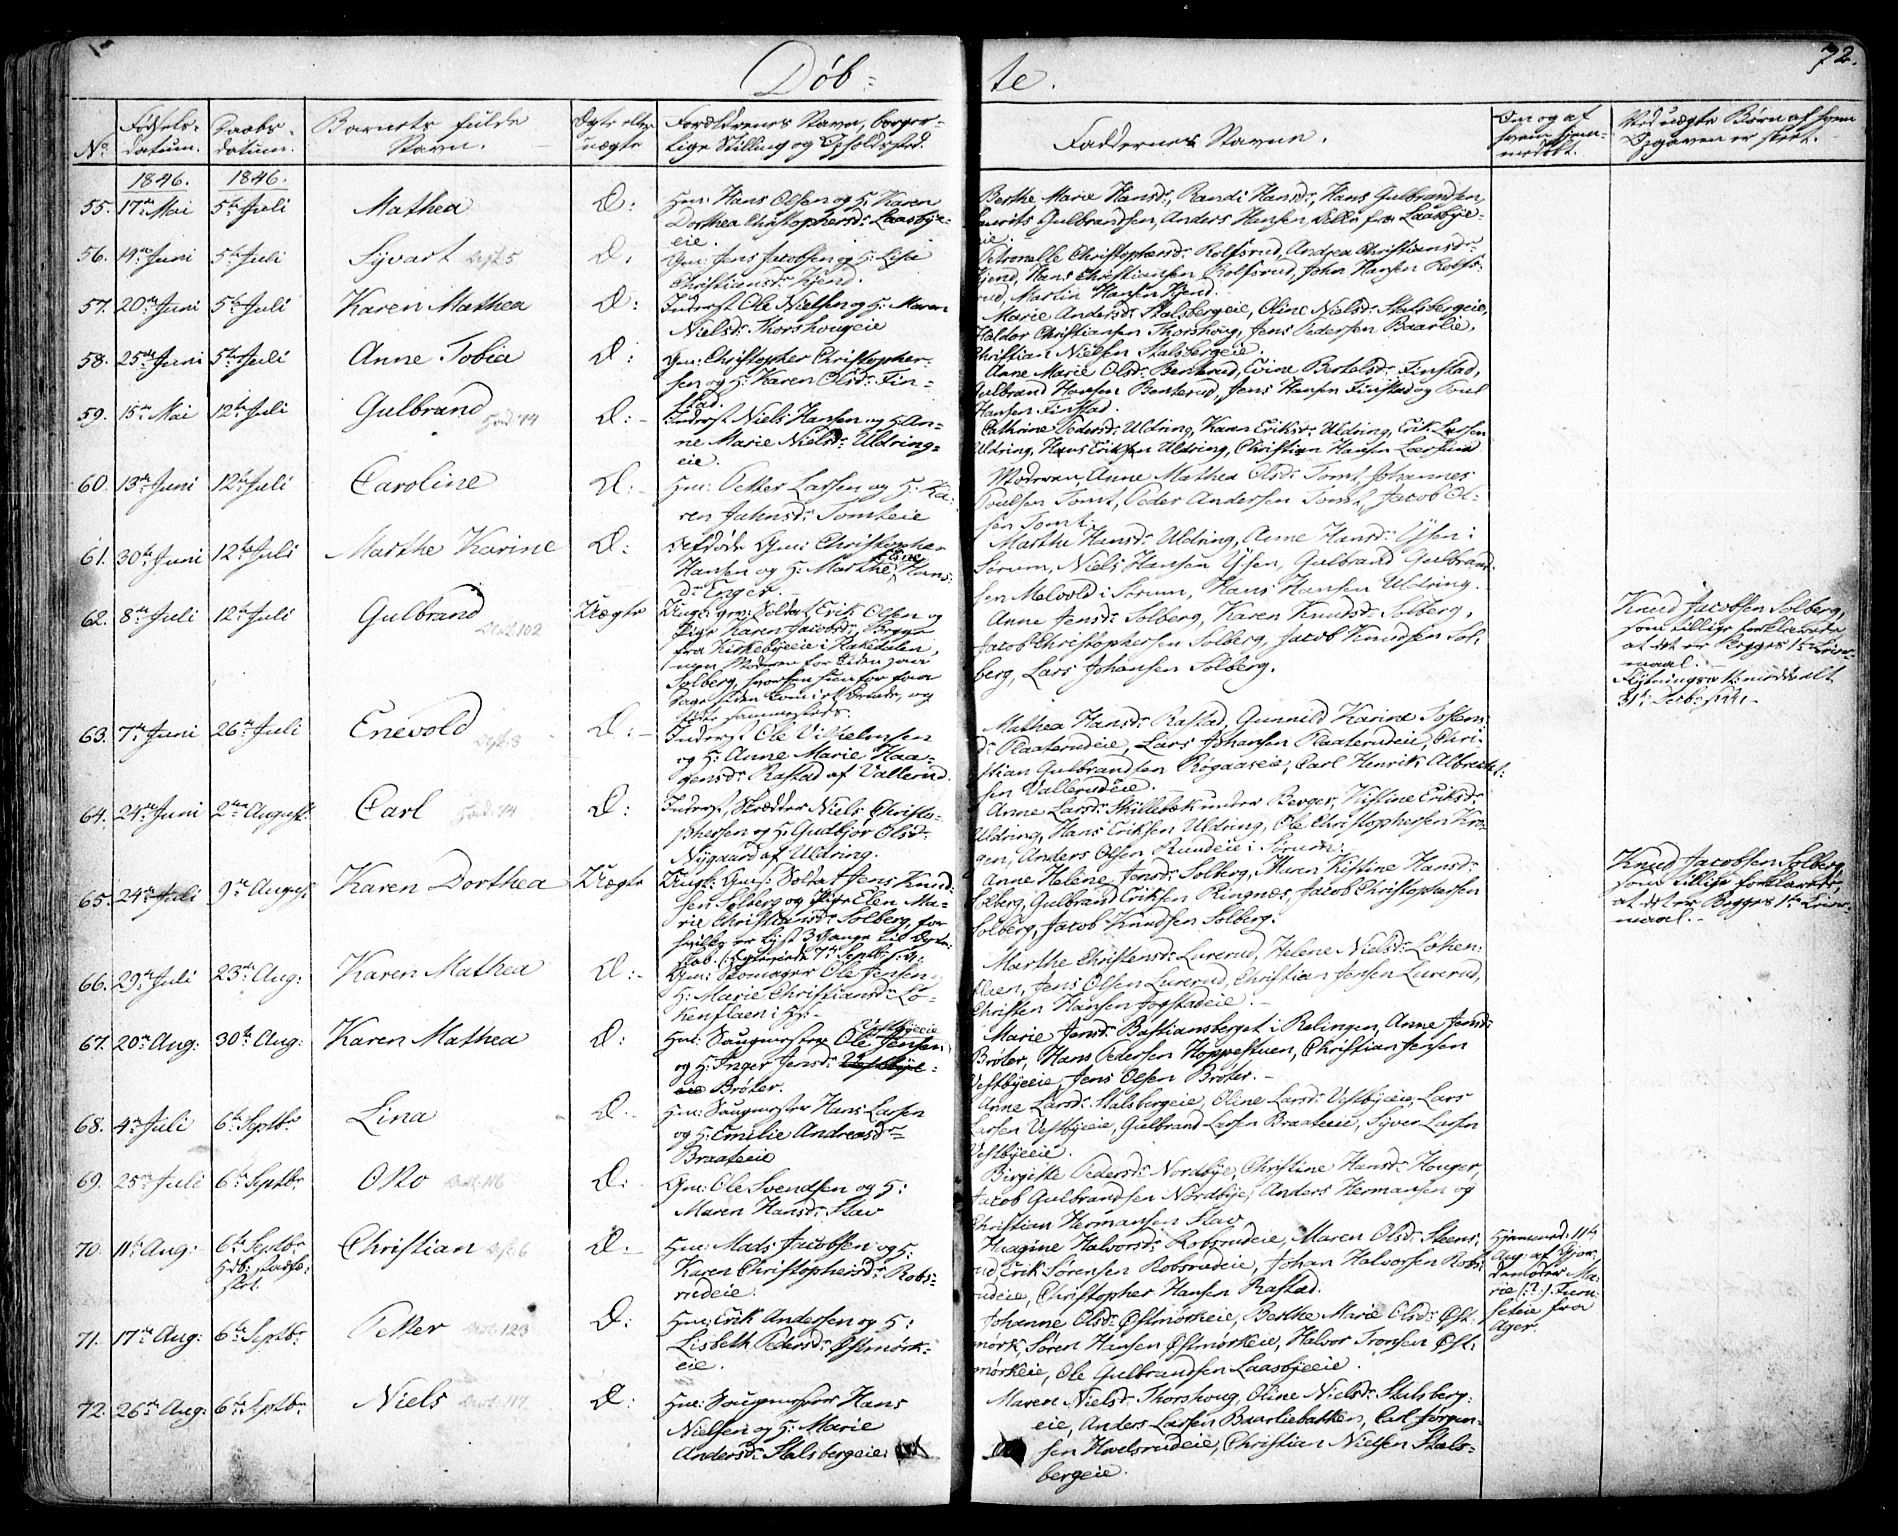 Døb-
te.
72.
No
Fødsels-
datum.
Daabs-
datum.
Barnets fulde
Navn.
Ægte eller
uægte
Forældrenes Navn, borger-
lige Stilling og Opholdssted.
Faddernes Navne.
Om og af
hvem hjem-
medøbt.
Ved uægte Børn af hvem
Opgaven er skeet.
1846.
1846.
55. 17de Mai 5te Juli Mathea Æ:
Hm: Hans Olsen og H: Karen
Dorthea Christophersd: Laasbye-
eie.
Berthe Marie Hansd:, Randi Hansd:, Hans Gulbrandsen,
Laurits Gulbrandsen, Anders Hansen, alle fra Laasbye-
eie.
56. 14de Juni 5te Juli Syvart Æ:
Gm: Jens Jacobsen og H: Lisa
Christiansd: Kjend.
Petronelle Christophersd: Rolfsrud, Andrea Christiansd:
Kjend, Hans Christiansen Rolfsrud, John Hansen Rolfs-
rud, Martin Hansen Kjend.
57. 20de Juni 5te Juli Karen Mathea Æ:
Inderst Ole Nielsen og H: Maren
Nielsd: Thorshougeie
Marie Andersd: Stalsbergeie, Oline Nielsd: Stalsbergeie,
Haldor Christiansen Thorshoug, Jens Pedersen Baarlie,
Christian Nielsen Stalsbergeie.
58. 25de Juni 5te Juli Anne Tobia Æ:
Gm: Christopher Christopher-
sen og H: Karen Olsd: Fin-
stad.
Anne Marie Olsd: Benterud, Eline Bertelsd: Finstad,
Gulbrand Hansen Benterud, Jens Hansen Finstad og Poul
Hansen Finstad.
59. 15de Mai 12te Juli Gulbrand Æ:-
Inderst Niels Hansen og H: An-
ne Marie Nielsd: Uldring-
eie.
Cathrine Pedersd: Uldring, Karen Eriksd: Uldring, Erik Larsen
Uldring, Hans Eriksen Uldring, Christian Hansen Læssum
60. 13de Juni 12te Juli Caroline Æ:-
Hm: Petter Larsen og H: Ka-
ren Jahnsd: Tomteie
Moderen, Anne Mathea Olsd: Tomt, Johannes
Poulsen Tomt, Peder Andersen Tomt, Jacob Ol-
sen Tomt.
61. 30te Juni 12te Juli Marthe Karine Æ:
Afdøde Gm: Christopher
Hansen og H: Marthe Eline Hans-
d: Enger.
Marthe Hansd: Uldring, Anne Hansd: Ijsen i
Sørum, Niels Hansen Ijsen, Gulbrand Gulbrand-
sen Melvold i Sørum, Hans Hansen Uldring.
62. 8de Juli 12te Juli Gulbrand Uægte
Ungk: grv: Soldat Erik Olsen og
Pige Karen Jacobsd:, Begge
fra Kirkebyeeie i Rakedalen,
men Moderen for Tiden paa
Solberg, hvorhen hun for faa
Dage siden kom i et Ærinde, og
fødte sammesteds.
Anne Jensd: Solberg, Karen Knudsd: Solberg,
Jacob Christophersen Solberg, Jacob Knudsen Sol-
berg, Lars Johansen Solberg.
Knud Jacobsen Solberg,
som tillige forklarede
at det er Begges 1ste Leier-
maal.
63. 7de Juni 26de Juli Enevold Æ:-
Inderst Ole Vilhelmsen
og H: Anne Marie Haa-
gensd: Rastad af Vallerud.
Mathea Hansd: Rastad, Gunnild Karine Tosten-
d: Plaaterudeie, Lars Johansen Plaaterudeie, Chri-
stian Gulbrandsen Bøgaaseie, Carl Henrik Albrecht-
sen Vallerudeie.
64. 24de Juni 2den August Carl Æ:
Inderst, Skrædder Niels Christo-
phersen og H: Gudbjør Olsd:
Nygaard af Uldring.
Anne Larsd: Skillebæk under Berger, Kistine Eriksd:
Uldring, Hans Eriksen Uldring, Ole Christophersen Kro-
gen, Anders Olsen Rundeie i Sørum.
65. 24de Juli 9de August Karen Dorthea Uægte
Ungk: Gms: Soldat Jens Knud-
sen Solberg og Pige Elen Ma-
rie Christiansd: Solberg, for
hvilke er lyst 3 Gange til Ægte-
skab.
Anne Helene Jensd: Solberg, Maren Kistine Hansd:
Solberg, Gulbrand Eriksen Ringnæs, Jacob Christophersen
Solberg, Jacob Knudsen Solberg.
Knud Jacobsen Solberg
som tillige forklarede,
at det er Begges 1ste Leier-
maal.-
66. 29de Juli 23de Aug: Karen Mathea Æ:-
Gm: Skomager Ole Jensen
H: Marie Christiansd: Lø-
kenflaen i Hs:-
Marthe Christensd: Lurerud, Helene Nielsd: Løken-
flaen, Jens Olsen Lurerud, Christian Jensen Lurerud,
Christen Hansen Fogstadeie.-
67. 20de Aug: 30te Aug: Karen Mathea Æ:
Hm: Saugmester Ole Jensen Vestbyeeie
og H: Inger Jensd:
Brøter.
Marie Jensd: Bastiansberget i Relingen, Anne Jensd:
Brøter, Hans Pedersen Hoppestuen, Christian Jensen
Vestbyeeie, Jens Olsen Brøter.-
68. 4de Juli 6te Septbr Lina Æ:
Hm: Saugmester Hans Larsen
og H: Emilie Andreasd:
Braateeie
Anne Larsd: Stalsbergeie, Oline Larsd: Vestbyeeie, Lars
Larsen Vestbyeeie, Gulbrand Larsen Braateeie, Syver Larsen
Vestbyeeie.
69. 25de Juli 6te Septbr Otto Æ:
Gm: Ole Svendsen og H:
Maren Hansd: Stav
Birgitte Pedersd: Nordbye, Christine Hansd: Houger,
Jacob Gulbrandsen Nordbye, Anders Hermansen og
Christian Hermansen Stav
70. 11te Aug: 6te Septbr
Hdb: stadfæ-
stet.
Christian Æ:-
Hm: Mads Jacobsen og H:
Karen Christophersd: Robs-
rudeie.
Haagine Halvorsd: Robsrudeie, Maren Olsd: Steens-
rud, Erik Sørensen Robsrudeie, Johan Halvorsen Robs-
rudeie, Christopher Hansen Rastad.
Hjemmed: 11te
Aug: af Gjor-
demoder Ma-
rie (:?:) Furu-
seteie fra
Ager.
71. 17de Aug: 6te Septbr Petter Æ:
Hm: Erik Andersen og H:
Lisbeth Pedersd: Østmørk-
eie.
Johanne Olsd: Østmørkeie, Berthe Marie Olsd: Øst-
mørk, Søren Hansen Østmørkeie, Halvor Tronsen Øst-
mørkeie, Ole Gulbrandsen Laasbyeeie.
72. 26de Aug: 6te Septbr Niels Æ:
Hm: Saugmester Hans
Nielsen og H: Marie
Andersd: Stalsbergeie.
Maren Nielsd: Thorshoug, Oline Nielsd: Stalsberg-
eie, Anders Larsen Baarliebakken, Carl Jørgen-
sen Hvelsrudeie, Christian Nielsen Stals-
bergeie.